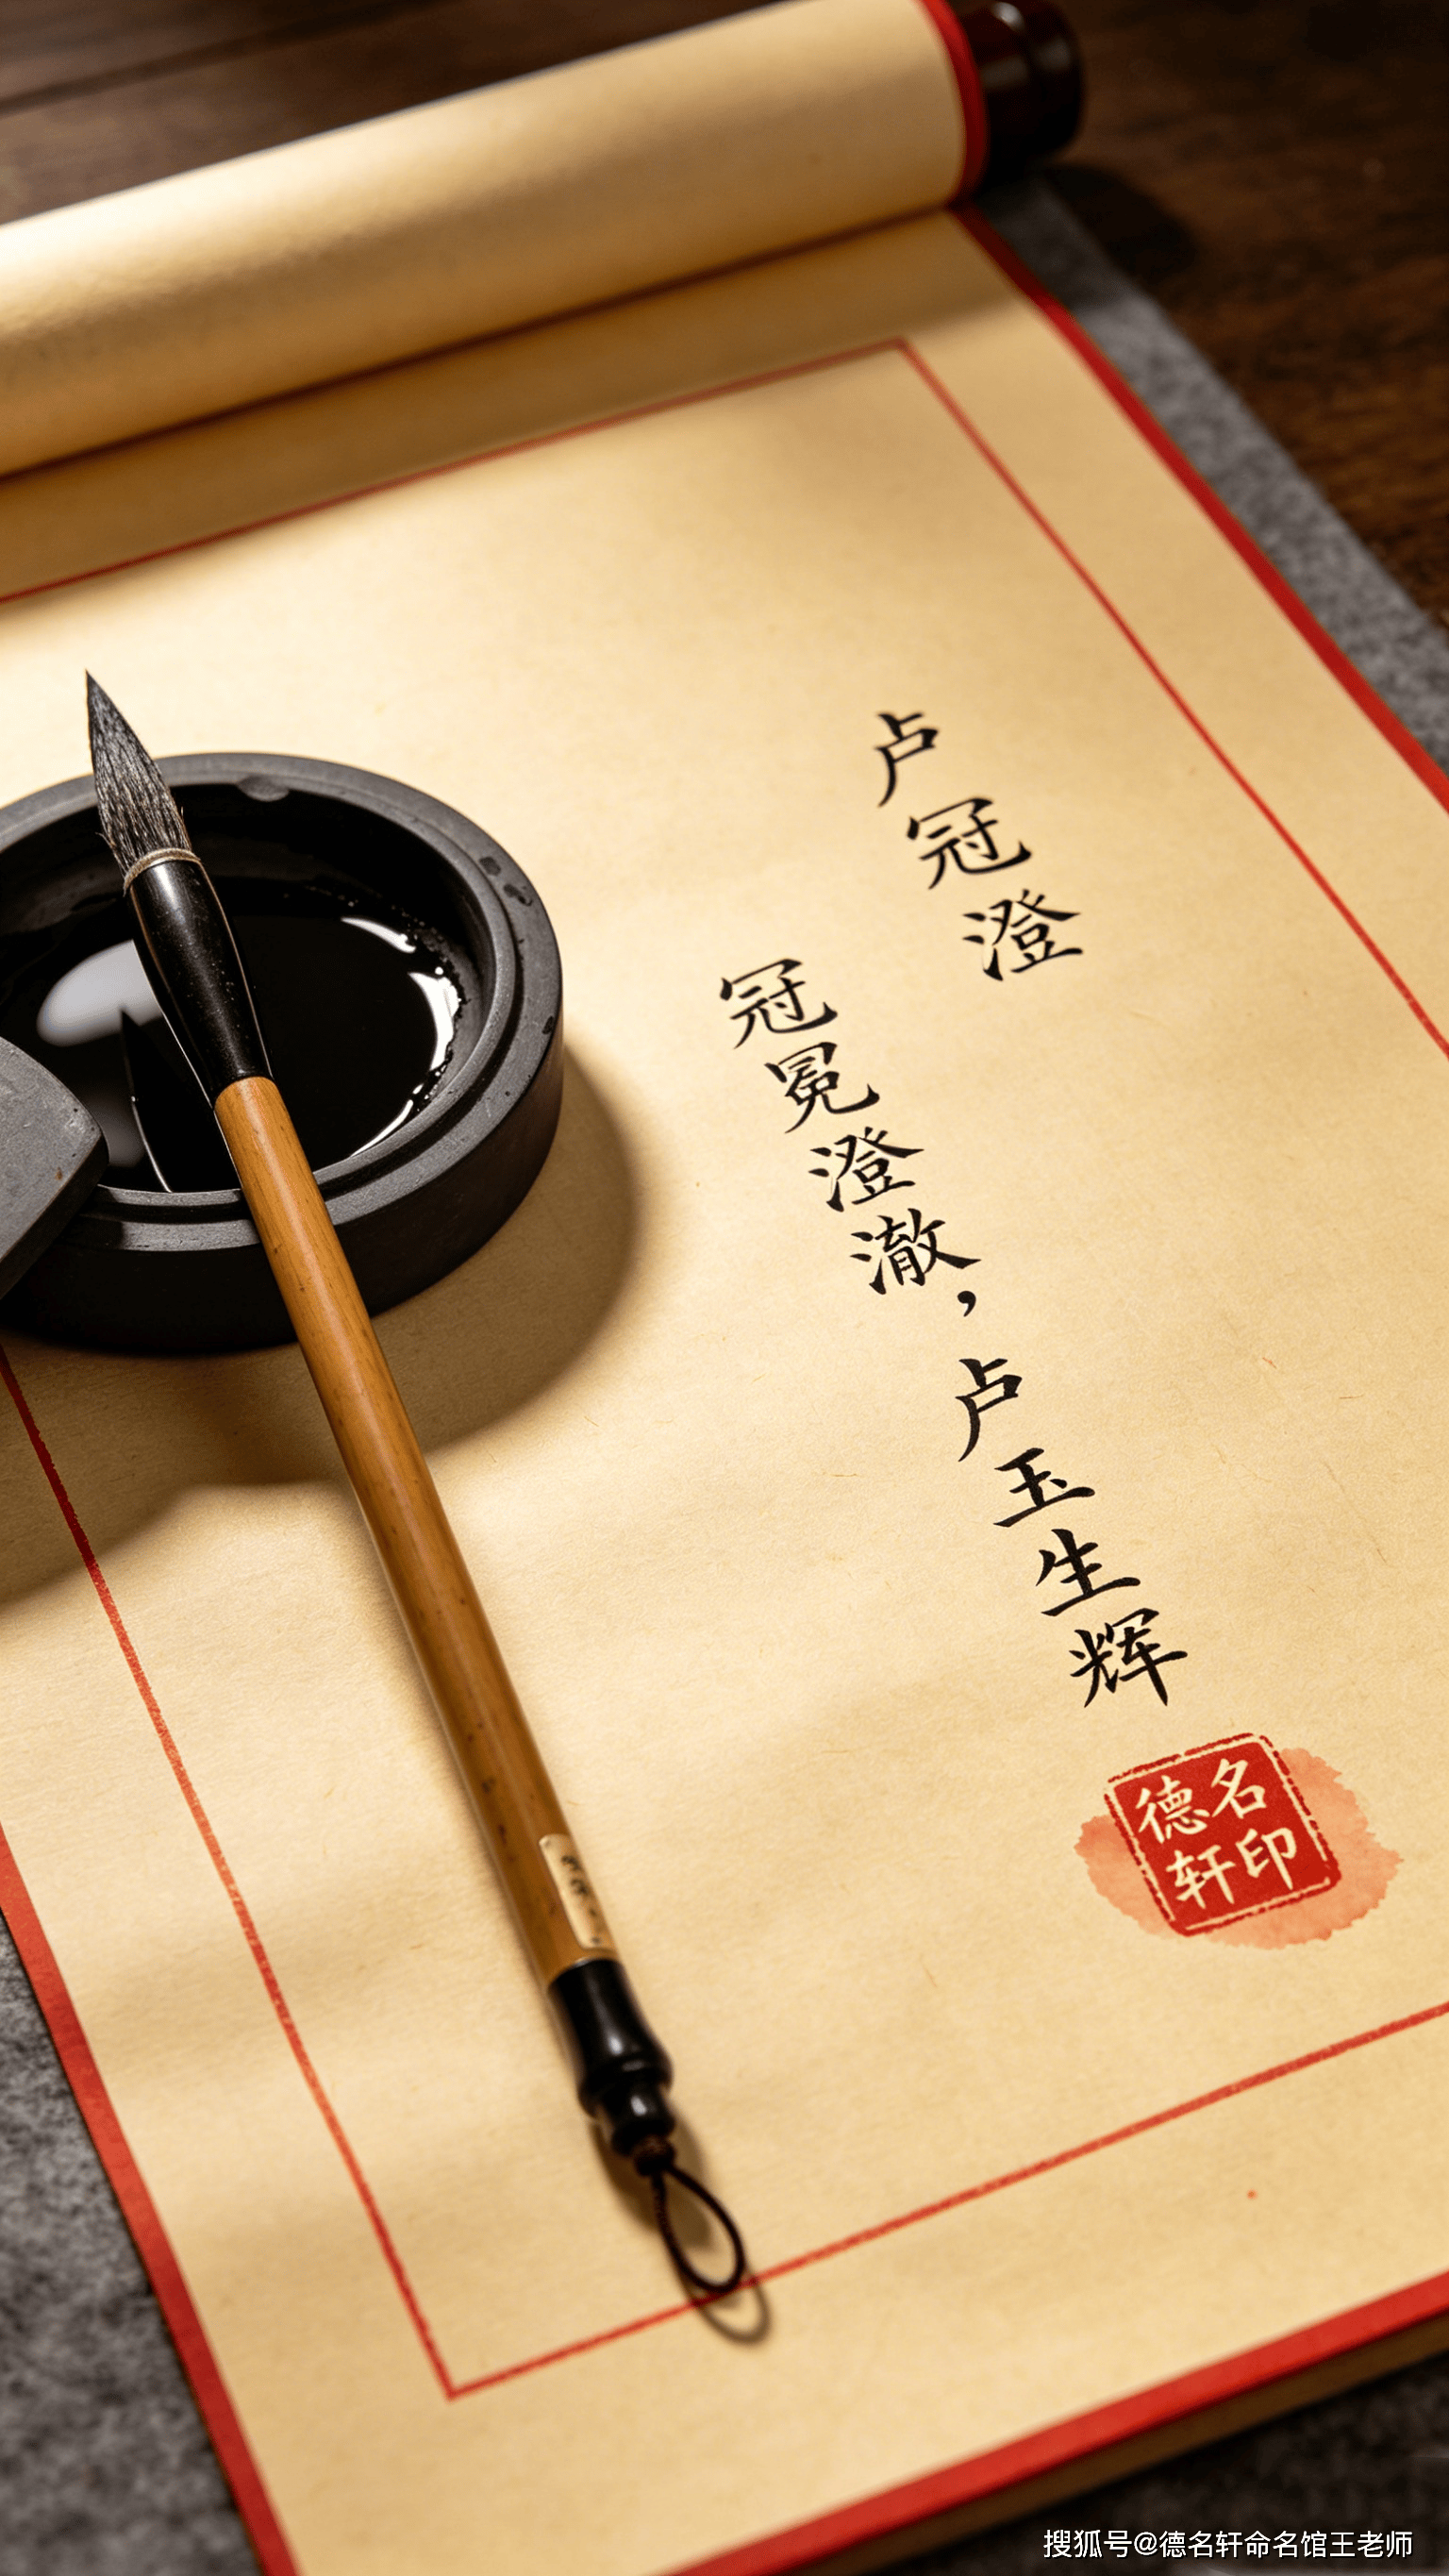 卢冠澄
冠冕澄澈，卢玉生辉
德名
轩印
搜狐号@德名轩命名馆王老师